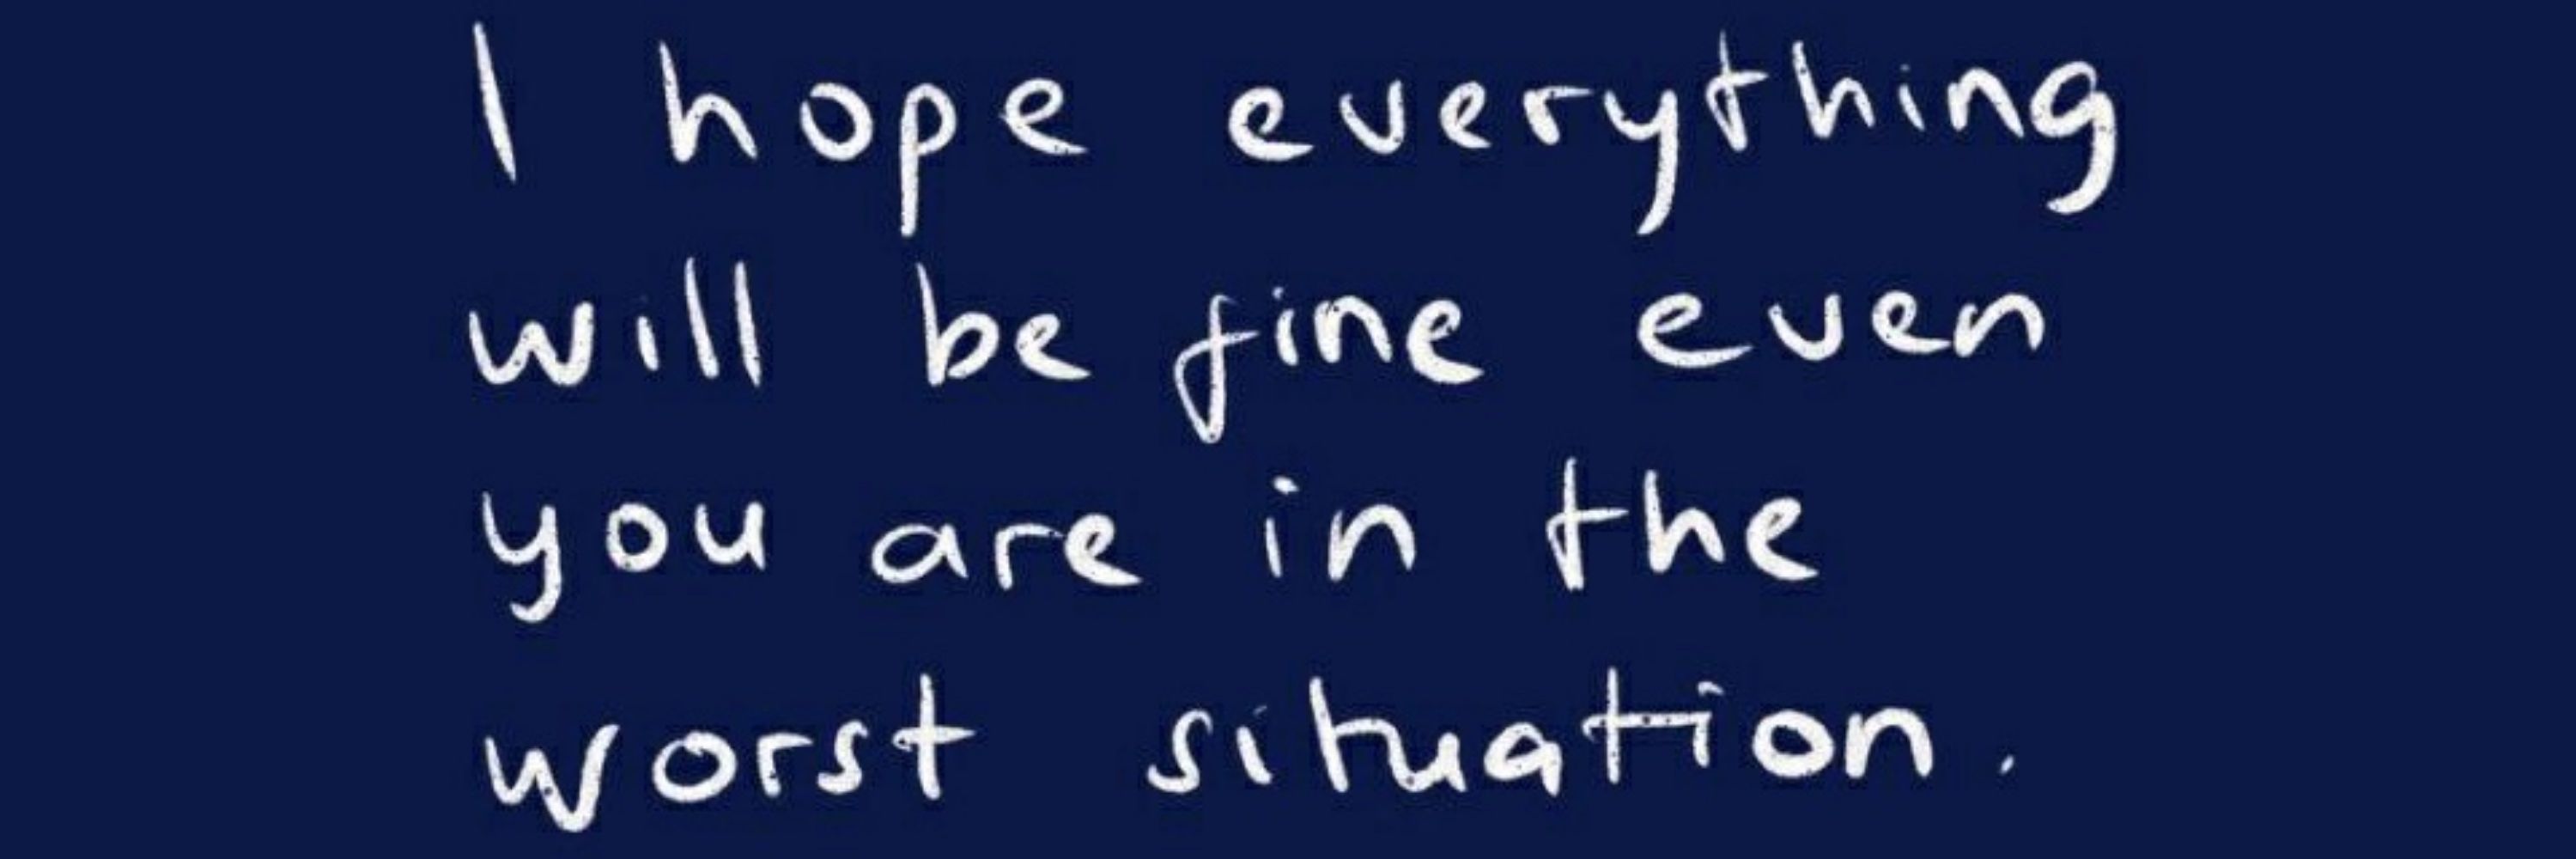 I hope everything
will be fine even
you are in the
worst situation.